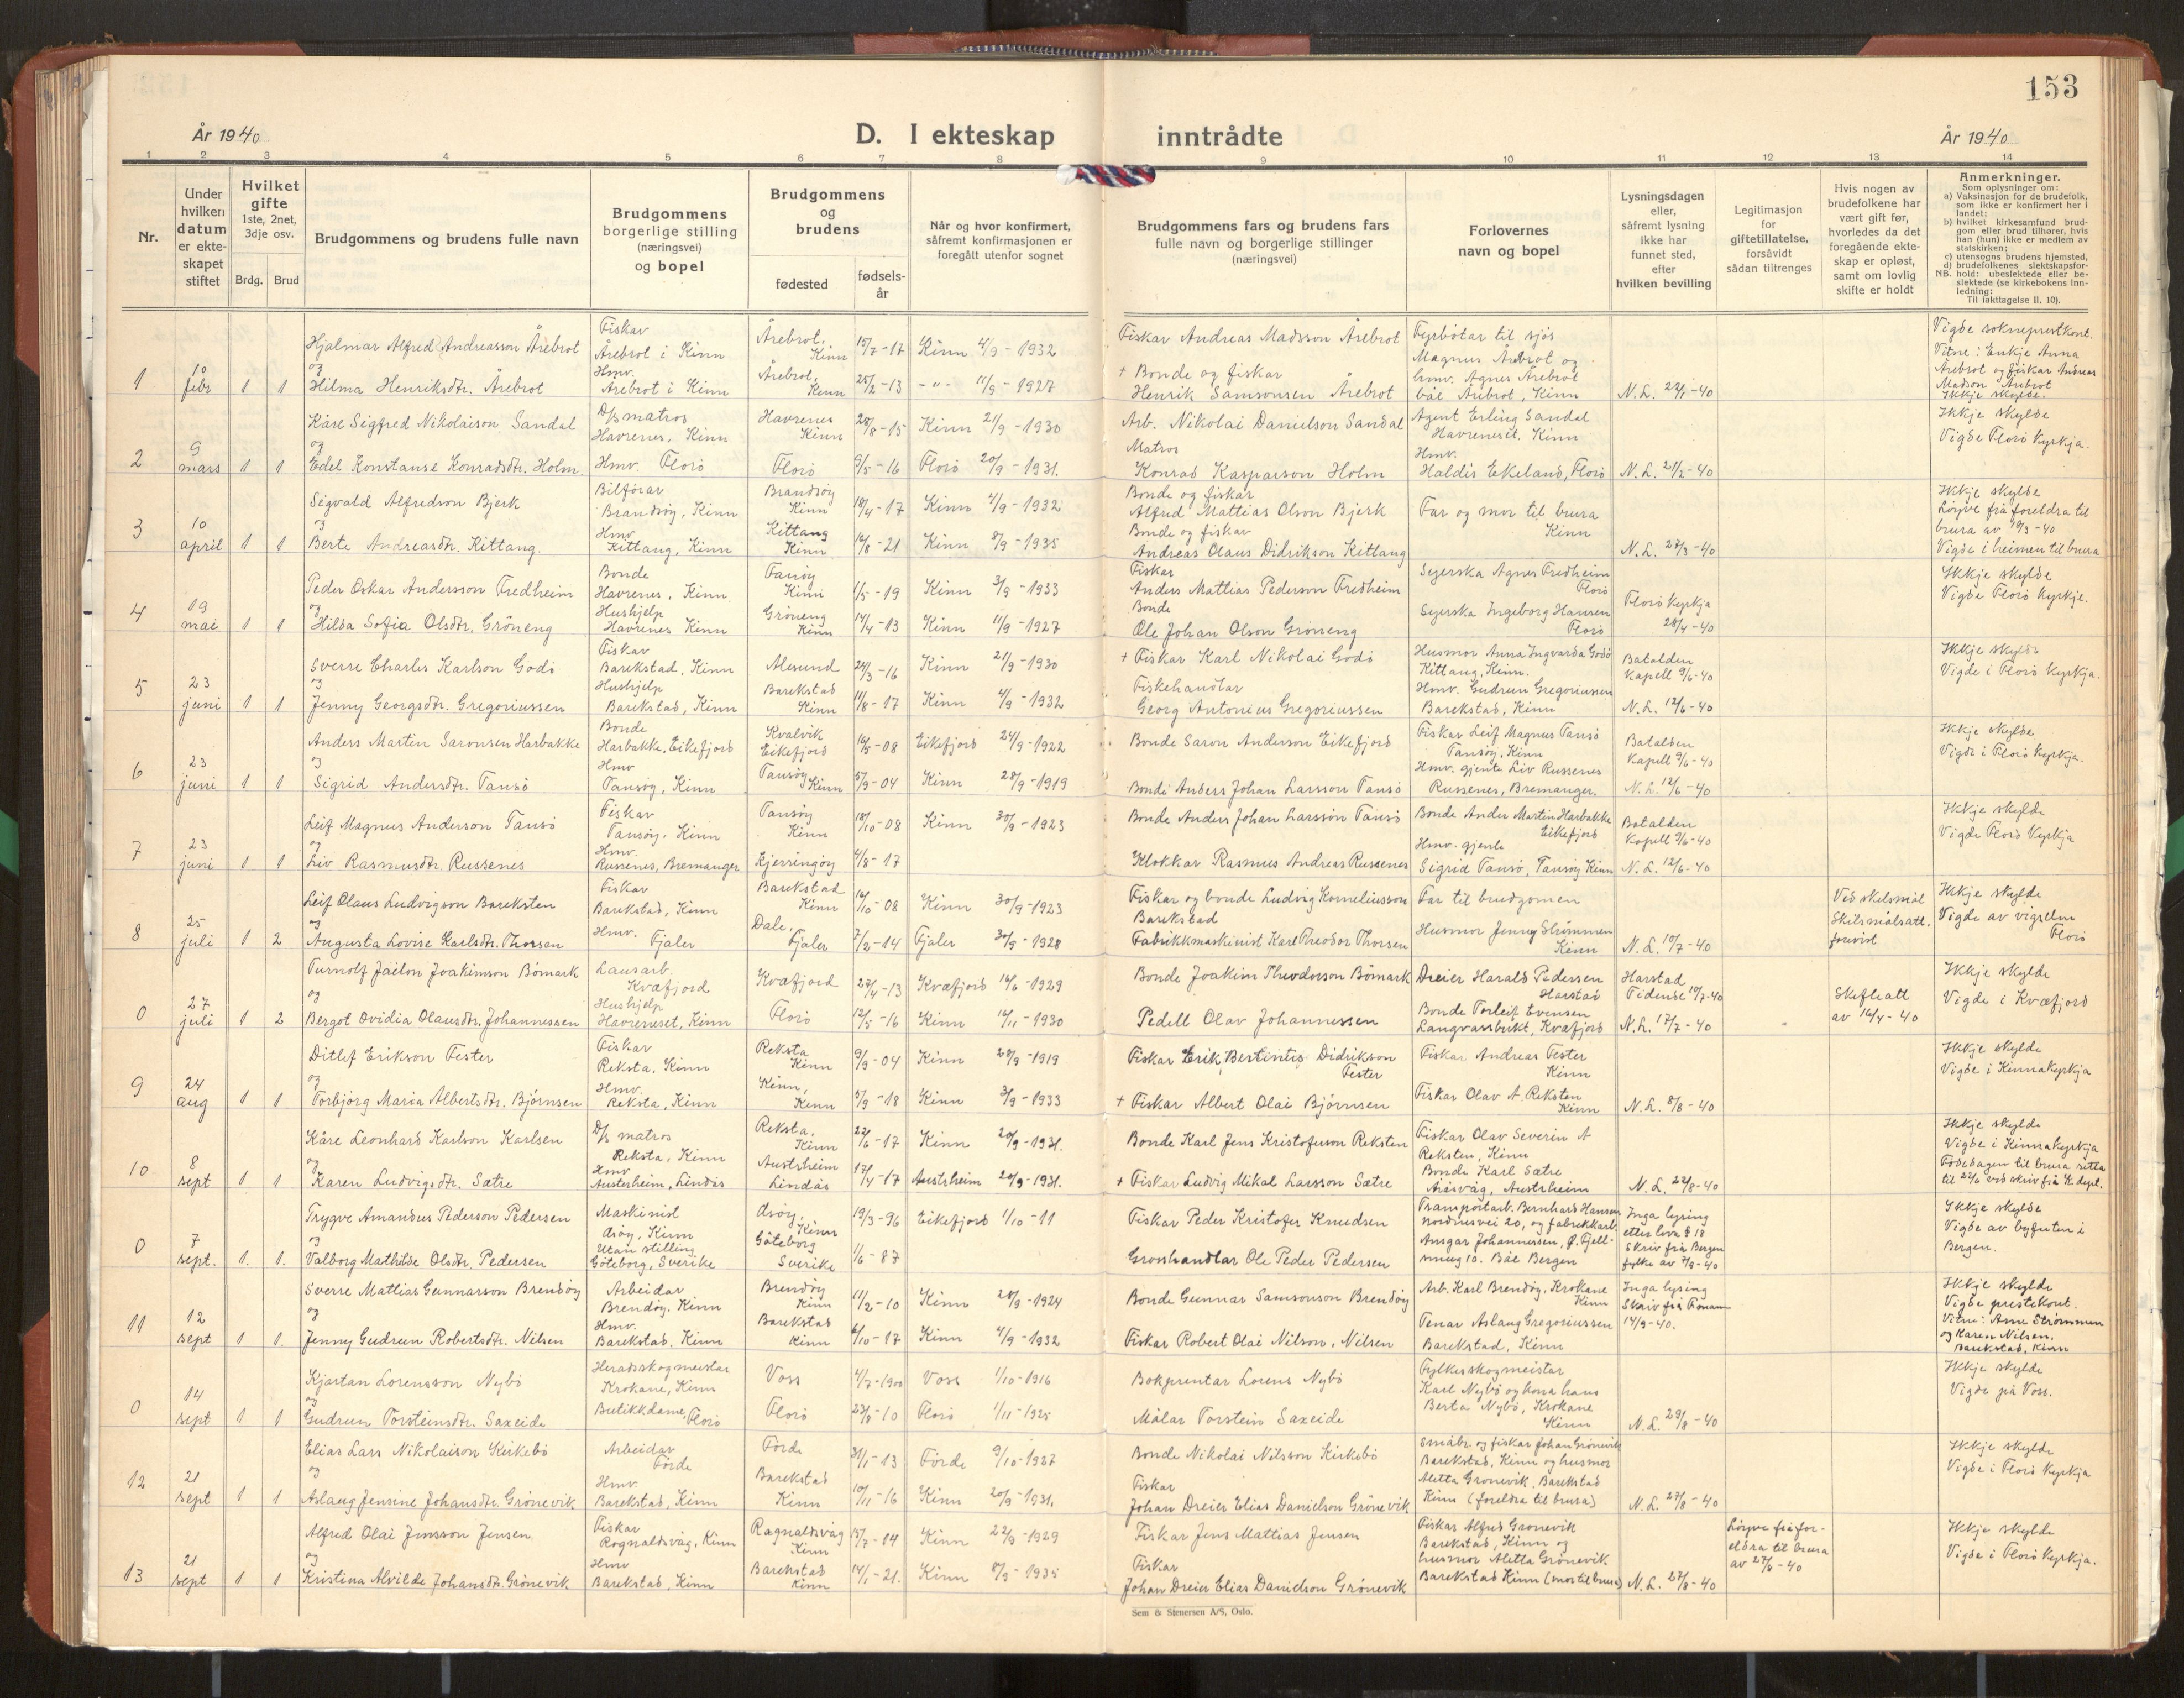 153
År 1940
D. I ekteskap inntrådte
År 1940
1 2 3 4 5 6 7 8 9 10 11 12 13 14
Nr.
Under hvilken datum er ekte-skapet stiftet
Hvilket gifte 1ste, 2net, 3dje osv.
Brdg. Brud
Brudgommens og brudens fulle navn
Brudgommens borgerlige stilling (næringsvei) og bopel
Brudgommens og brudens
fødested
fødsels-år
Når og hvor konfirmert, såfremt konfirmasjonen er foregått utenfor sognet
Brudgommens fars og brudens fars fulle navn og borgerlige stillinger (næringsvei)
Forlovernes navn og bopel
Lysningsdagen eller, såfremt lysning ikke har funnet sted, efter hvilken bevilling
Legitimasjon for giftetillatelse, forsåvidt sådan tiltrenges
Hvis nogen av brudefolkene har vært gift før, hvorledes da det foregående ekte-skap er opløst, samt om lovlig skifte er holdt
Anmerkninger.
Som oplysninger om:
a) Vaksinasjon for de brudefolk, som ikke er konfirmert her i landet;
b) hvilket kirkesamfund brud-gom eller brud tilhører, hvis han (hun) ikke er medlem av statskirken;
c) utensogns brudens hjemsted,
d) brudefolkenes slektskapsfor-hold: ubeslektede eller be-slektede (se kirkebokens inn-ledning:
NB. Til iakttagelse II. 10).
1 10 febr 1 1
Hjalmar Alfred Andreasson Årebrot
og
Hilma Henriksdtr. Årebrot
Fiskar
Årebrot i Kinn
Hmv.
Årebrot i Kinn
Årebrot, Kinn 15/7-17 Kinn 4/9-1932
Årebrot, Kinn 25/2-13 -"- 11/9-1927
Fiskar Andreas Madsson Årebrot
+ Bonde og fiskar
Henrik Samsonsen Årebrot
Fyrbøtar til sjøs
Magnus Årebrot og
hmv. Agnes Årebrot
båe Årebrot, Kinn
N. L. 22/1-40
Vigde sokneprestkont.
Vitne: Enkje Anna
Årebrot og fiskar Andreas
Madson Årebrot
Ikkje skylde.
2 9 mars 1 1
Kåre Sigfred Nikolaison Sandal
og
Edel Konstanse Konradsdtr. Holm
D/s matros
Havrenes, Kinn
Hmv. Florø
Havrenes Kinn 28/8-15 Kinn 21/9-1930
Florø 9/5-16 Florø 20/9-1931.
Arb. Nikolai Danielson Sandal
Matros
Konrad Kasparson Holm
Agent Erling Sandal
Havreneset. Kinn
Hmv.
Haldis Ekeland, Florø
N. L. 21/2-40
Ikkje skylde
Vigde Florø kyrkja.
3 10 april 1 1
Sigvald Alfredson Bjerk
og
Berte Andreasdtr. Kittang.
Bilførar
Brandsøy, Kinn
Hmv
Kittang, Kinn
Brandsøy Kinn 18/4-17 Kinn 4/9-1932
Kittang Kinn 16/8-21 Kinn 8/9-1935
Bonde og fiskar
Alfred Mattias Olson Bjerk
Bonde og fiskar
Andreas Olaus Didrikson Kittang
Far og mor til brura
Kinn
N. L. 27/3-40
Ikkje skylde
Løyve frå foreldra til
brura av 19/3-40
Vigde i heimen til brura
4 19 mai 1 1
Peder Oskar Andersson Fredheim
og
Hilda Sofia Olsdtr. Grøneng
Bonde
Havrenes, Kinn
Hushjelp
Havrenes Kinn
Fanøy Kinn 1/5-19 Kinn 3/9-1933
Grøneng Kinn 14/4-13 Kinn 11/9-1927
Fiskar
Anders Mattias Pederson Fredheim
Bonde
Ole Johan Olson Grøneng
Syerska Agnes Fredheim
Florø
Syerska Ingeborg Hansen
Florø
Florø kyrkja
28/4-40
Ikkje skylde
Vigde Florø kyrkje.
5 23 juni 1 1
Sverre Charles Karlson Godø
og
Jenny Georgsdtr. Gregoriussen
Fiskar
Barekstad, Kinn
Hushjelp
Barekstad, Kinn
Ålesund 24/3-16 Kinn 21/9-1930
Barekstad Kinn 11/8-17 Kinn 4/9-1932
+ Fiskar Karl Nikolai Godø
Fiskehandlar
Georg Antonius Gregoriussen
Husmor Anna Ingvarda Godø
Kittang, Kinn.
Hmv. Gudrun Gregoriussen
Barekstad, Kinn
Batalden
Kapell 9/6-40
N. L. 12/6-40
Ikkje skylde
Vigde i Florø kyrkja.
6 23 juni 1 1
Anders Martin Saronsen Harbakke
og
Sigrid Andersdtr. Tansø
Bonde
Harbakke, Eikefjord
Hmv
Tansøy, Kinn
Kvalvik Eikefjord 16/5-08 Eikefjord 24/9-1922
Tansøy Kinn 5/9-04 Kinn 28/9-1919
Bonde Saron Anderson Eikefjord
Bonde Anders Johan Larsson Tansø
Fiskar Leif Magnus Tansø
Tansøy, Kinn
Hmv. gjente Liv Russenes
Russenes, Bremanger.
Batalden
Kapell 9/6-40
N. L. 12/6-40
Ikkje skylde
Vigde i Florø kyrkja.
7 23 juni 1 1
Leif Magnus Anderson Tansø
og
Liv Rasmusdtr. Russenes
Fiskar
Tansøy. Kinn
Hmv.
Russenes, Bremanger
Tansøy Kinn 18/10-08 Kinn 30/9-1923
Kjerringøy 4/8-17
Bonde Anders Johan Larsson Tansø
Klokkar Rasmus Andreas Russenes
Bonde Ander Martin Harbakke
Eikefjord
Hmv. gjente
Sigrid Tansø, Tansøy Kinn
Batalden
Kapell 9/6-40
N. L. 12/6-40
Ikkje skylde
Vigde Florø Kyrkja
8 25 juli 1 2
Leif Olaus Ludvigson Bareksten
og
Augusta Lovise Karlsdtr. Thorsen
Fiskar
Barekstad, Kinn
Hmv. Fjaler
Barekstad Kinn 16/10-08 Kinn 30/9-1923
Dale, Fjaler 7/2-14 Fjaler 30/9-1928
Fiskar og bonde Ludvig Korneliusson
Barekstad
Fabrikkmaskinist Karl Theodor Thorsen
Far til brudgomen
Husmor Jenny Strømmen
Kinn
N. L. 10/7-40
Ved skilsmål
Skilsmålsatt.
forevist
Ikkje skylde
Vigde av vigselm
Florø
0 27 juli 1 2
Turnolf Jailon Joakimson Bømark
og
Bergot Ovidia Olausdtr. Johannessen
Lausarb.
Kvæfjord
Hushjelp
Havreneset, Kinn
Kvæfjord 27/4-13 Kvæfjord 16/6-1929
Florø 12/5-16 Kinn 16/11-1930
Bonde Joakim Theodorson Bømark
Pedell Olav Johannessen
Dreier Harald Pedersen
Harstad
Bonde Torleif Evensen
Langvassbukt, Kvæfjord
Harstad
Tidende 19/7-40
N. L. 17/7-40
Skifteatt
av 16/4-40
Ikkje skylde
Vigde i Kvæfjord
9 24 aug 1 1
Ditlef Erikson Fester
og
Torbjørg Maria Albertsdtr. Bjørnsen
Fiskar
Reksta. Kinn
Hmv.
Reksta, Kinn
Reksta Kinn 9/9-04 Kinn 28/9-1919
Kinn, Kinn 5/9-18 Kinn 3/9-1933
Fiskar Erik Bertintis Didrikson
Fester
+ Fiskar Albert Olai Bjørnsen
Fiskar Andreas Fester
Kinn
Fiskar Olav A. Reksten
Kinn
N. L. 8/8-40
Ikkje skylde
Vigde i Kinnakyrkja
10 8 sept 1 1
Kåre Leonhard Karlson Karlsen
og
Karen Ludvigsdtr. Sætre
D/s matros
Reksta, Kinn
Hmv
Austerheim, Lindås
Reksta, Kinn 22/6-17 Kinn 20/9-1931.
Austrheim Lindås 17/4-17 Austrheim 20/9-1931.
Bonde Karl Jens Kristoferson Reksten
+ Fiskar Ludvig Mikal Larsson Sætre
Fiskar Olav Severin A
Reksten, Kinn
Bonde Karl Sætre
Åråsvåg, Austrheim
N. L. 22/8-40
Ikkje skylde
Vigde i Kinnakyrkja
Fødedagen til brura retta
til 22/6 ved skriv frå K. dept.
0 7 sept. 1. 1.
Trygve Amandus Pederson Pedersen
og
Valborg Mathilde Olsdtr. Pedersen
Maskinist
Åsøy, Kinn
Utan stilling
Göteborg, Sverike
Åsøy, Kinn 19/3-96 Eikefjord 1/10-11
Göteborg Sverike 1/6-87
Fiskar Peder Kristofer Knudsen
Grosshandlar Ole Peder Pedersen
Transportarb. Bernhard Hansen
Nordnesvei 20, og fabrikkarb.
Ansgar Johannessen, Ø. Fjell-
smug 10. Båe Bergen
Inga lysing
etter lova § 18
Skriv frå Bergen
fylke av 7/9-40
Ikkje skylde
Vigde av byfuten i
Bergen.
11 12 sept 1 1.
Sverre Mattias Gunnarson Brendøy
og
Jenny Gudrun Robertsdtr. Nilsen
Arbeidar
Brendøy, Kinn
Hmv.
Barekstad, Kinn
Brendøy Kinn 11/2-10 Kinn 28/9-1924
Barekstad Kinn 6/10-17 Kinn 4/9-1932
Bonde Gunnar Samsonson Brendøy
Fiskar Robert Olai Nilson, Nilsen
Arb. Karl Brendøy, Krokane
Kinn
Tenar Aslaug Gregoriussen
Barekstad, Kinn
Inga lysing
Skriv frå
14/9-40.
Ikkje skylde
Vigde prestekont.
Vitne: Anne Strømmen
og Karen Nilsen.
Barekstad, Kinn
0 14 sept 1 1
Kjartan Lorensson Nybø
og
Gudrun Torsteinsdtr. Saxeide
Heradsskogmeistar
Krokane, Kinn
Butikkdame, Florø
Voss 4/7-1900 Voss 1/10-1916
Florø 23/8-10 Florø 1/11-1925
Bokprentar Lorens Nybø
Målar Torstein Saxeide
Fylkesskogmeistar
Karl Nybø og kona hans
Berta Nybø, Krokane
Kinn
N. L. 29/8-40
Ikkje skylde
Vigde på Voss.
12 21 sept 1 1
Elias Lars Nikolaison Kirkebø
og
Aslaug Jensine Johansdtr. Grønevik
Arbeidar
Førde
Hmv.
Barekstad, Kinn
Førde 31/1-13 Førde 9/10-1927
Barekstad Kinn 10/11-16 Kinn 20/9-1931.
Bonde Nikolai Nilsson Kirkebø
Fiskar
Johan Dreier Elias Danielson Grønevik
Småbr. og fiskar Johan Grønevik
Barekstad, Kinn og husmor
Aletta Grønevik, Barekstad
Kinn (foreldra til brura)
N. L. 27/8-40
Ikkje skylde
Vigde i Florø kyrkja
13 21 sept 1 1
Alfred Olai Jensson Jensen
og
Kristina Alvilde Johansdtr. Grønevik
Fiskar
Rognaldsvåg, Kinn
Hmv
Barekstad, Kinn
Ragnaldsvåg Kinn 15/7-14 Kinn 22/9-1929
Barekstad Kinn 14/1-21. Kinn 8/9-1935
Fiskar Jens Mattias Jensen
Fiskar
Johan Dreier Elias Danielson Grønevik
Fiskar Alfred Grønevik
Barekstad, Kinn og
husmor Aletta Grønevik
Barekstad Kinn (mor til brura)
N. L. 27/8-40
Løyve frå for-
eldra til brura
av 27/8-40
Ikkje skylde
Vigde i Florø kyrkja.
Sem & Stenersen A/S, Oslo.